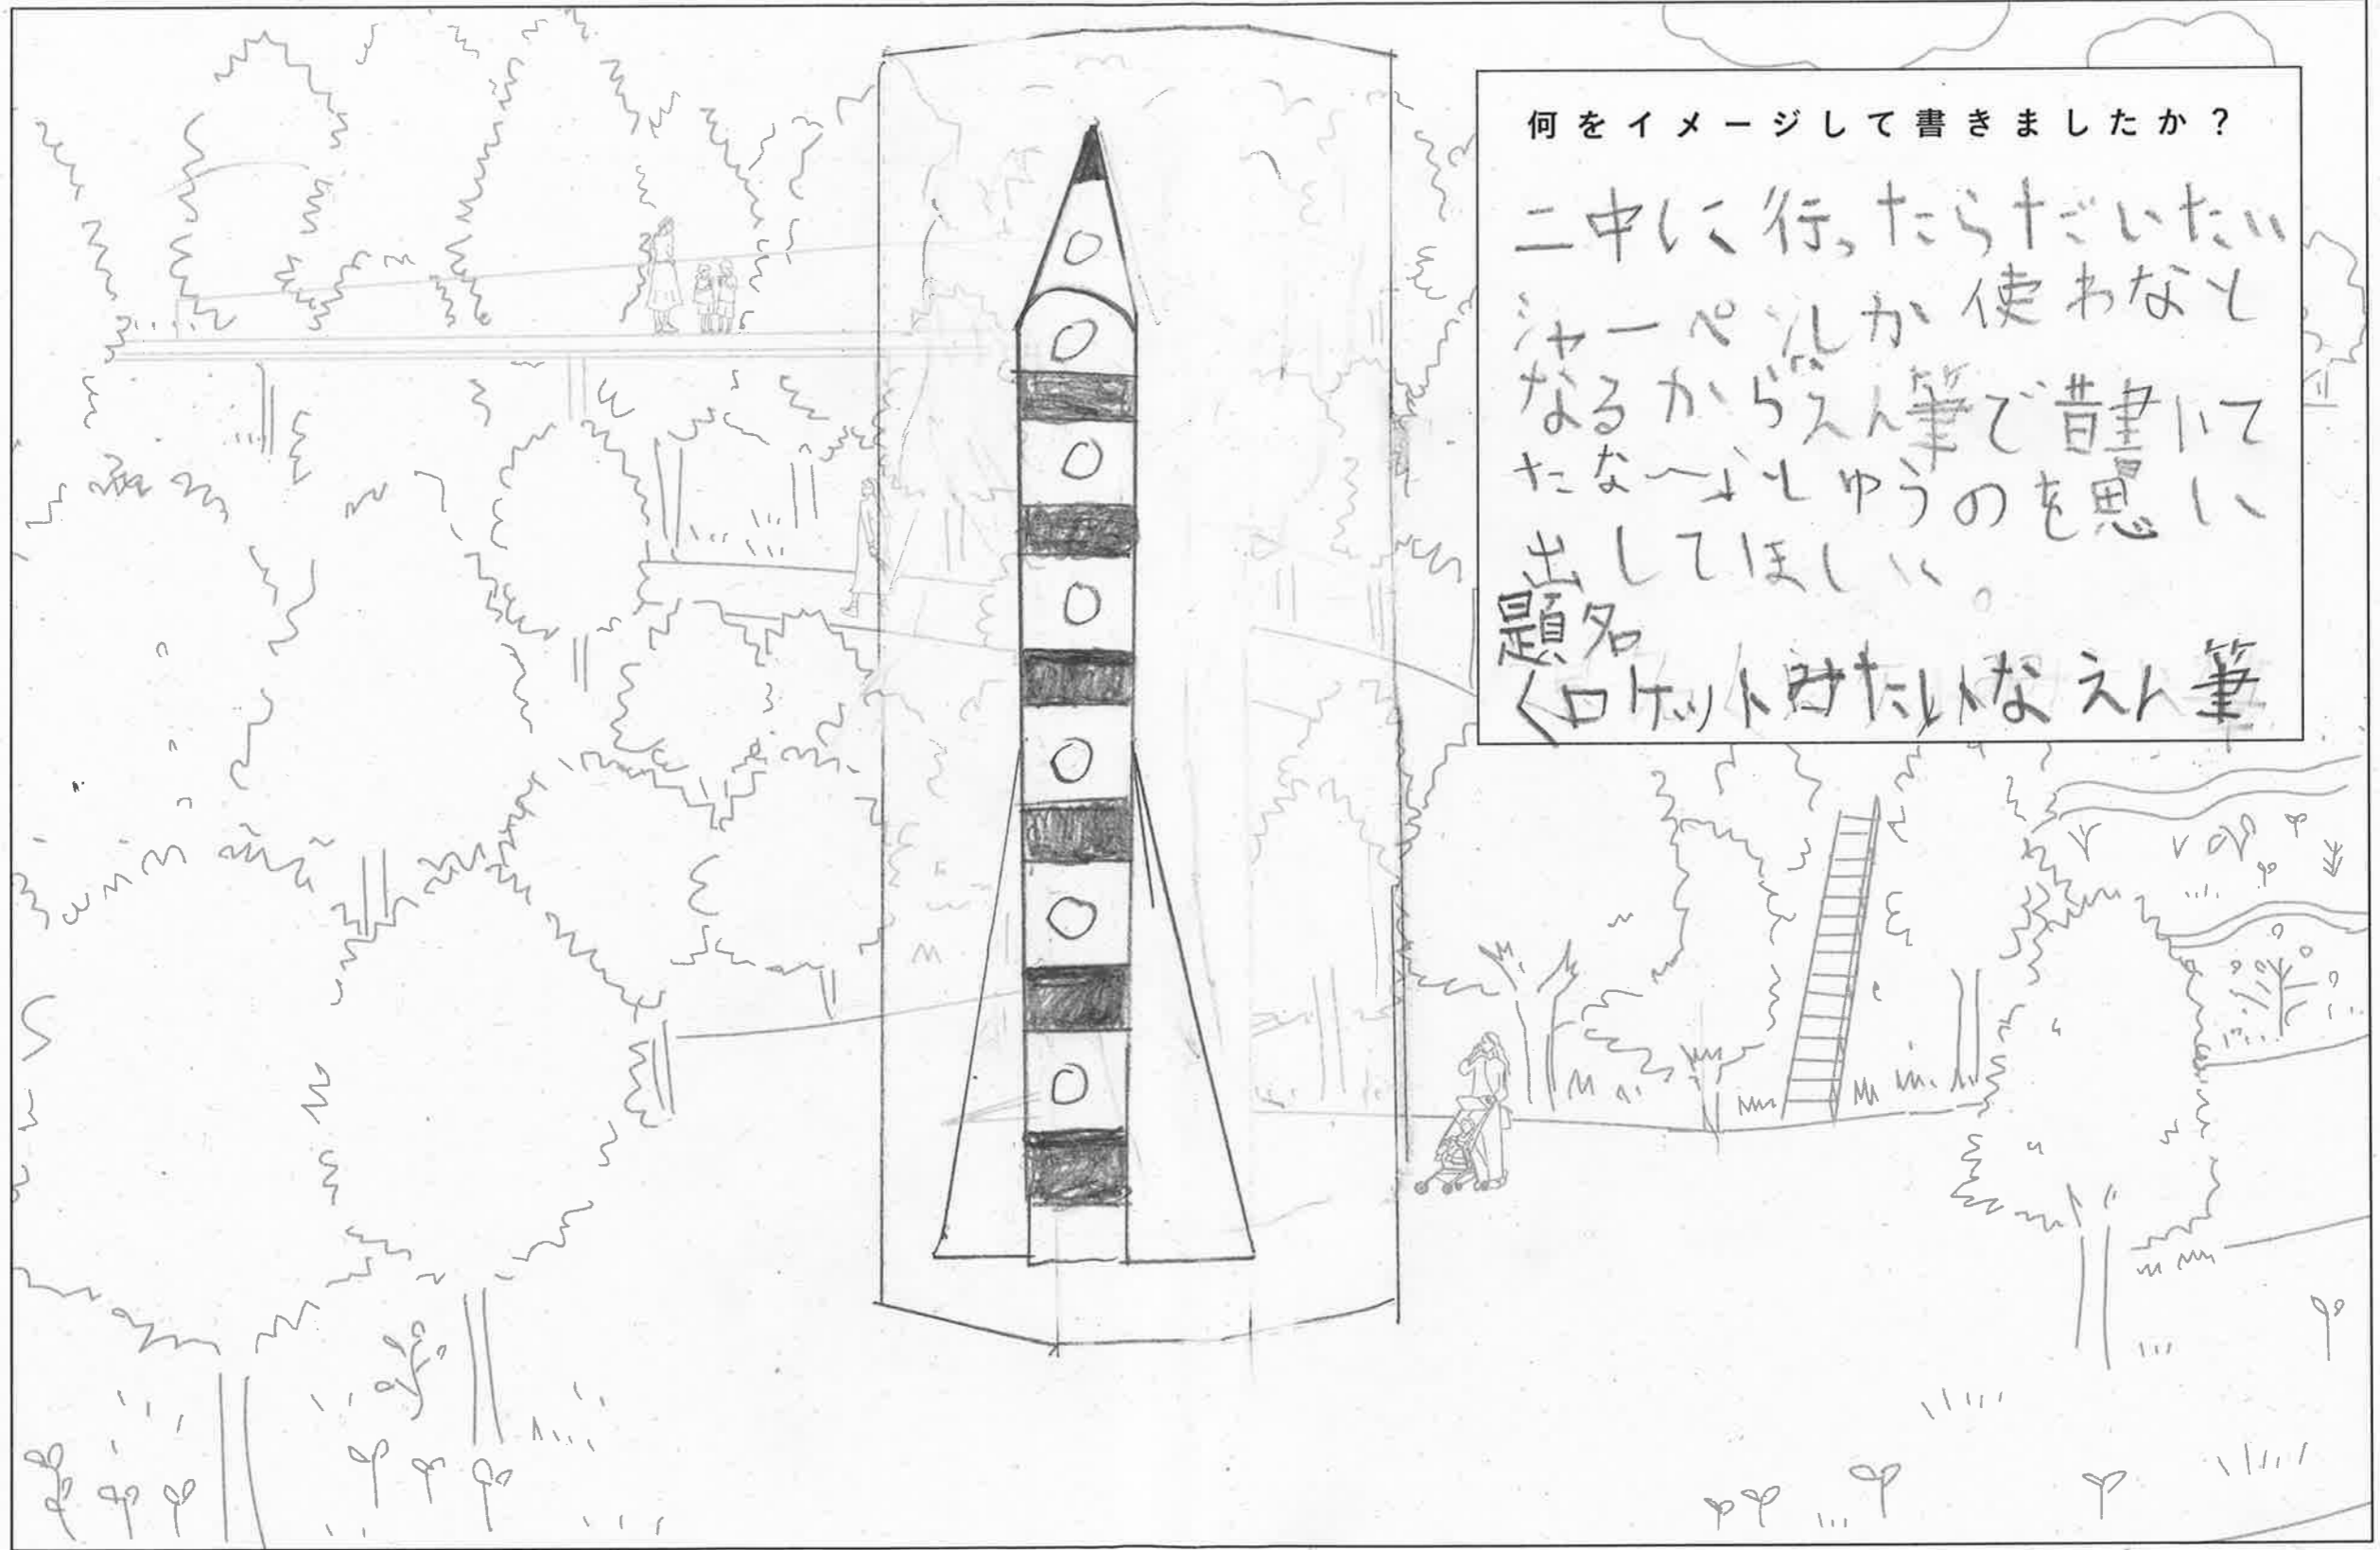 何をイメージして書きましたか？
二中に行ったらだいたい
シャーペンしか使わなく
なるから「えん筆で昔書いて
たな〜」とゆうのを思い
出してほしい。
題名
くロケットみたいなえん筆